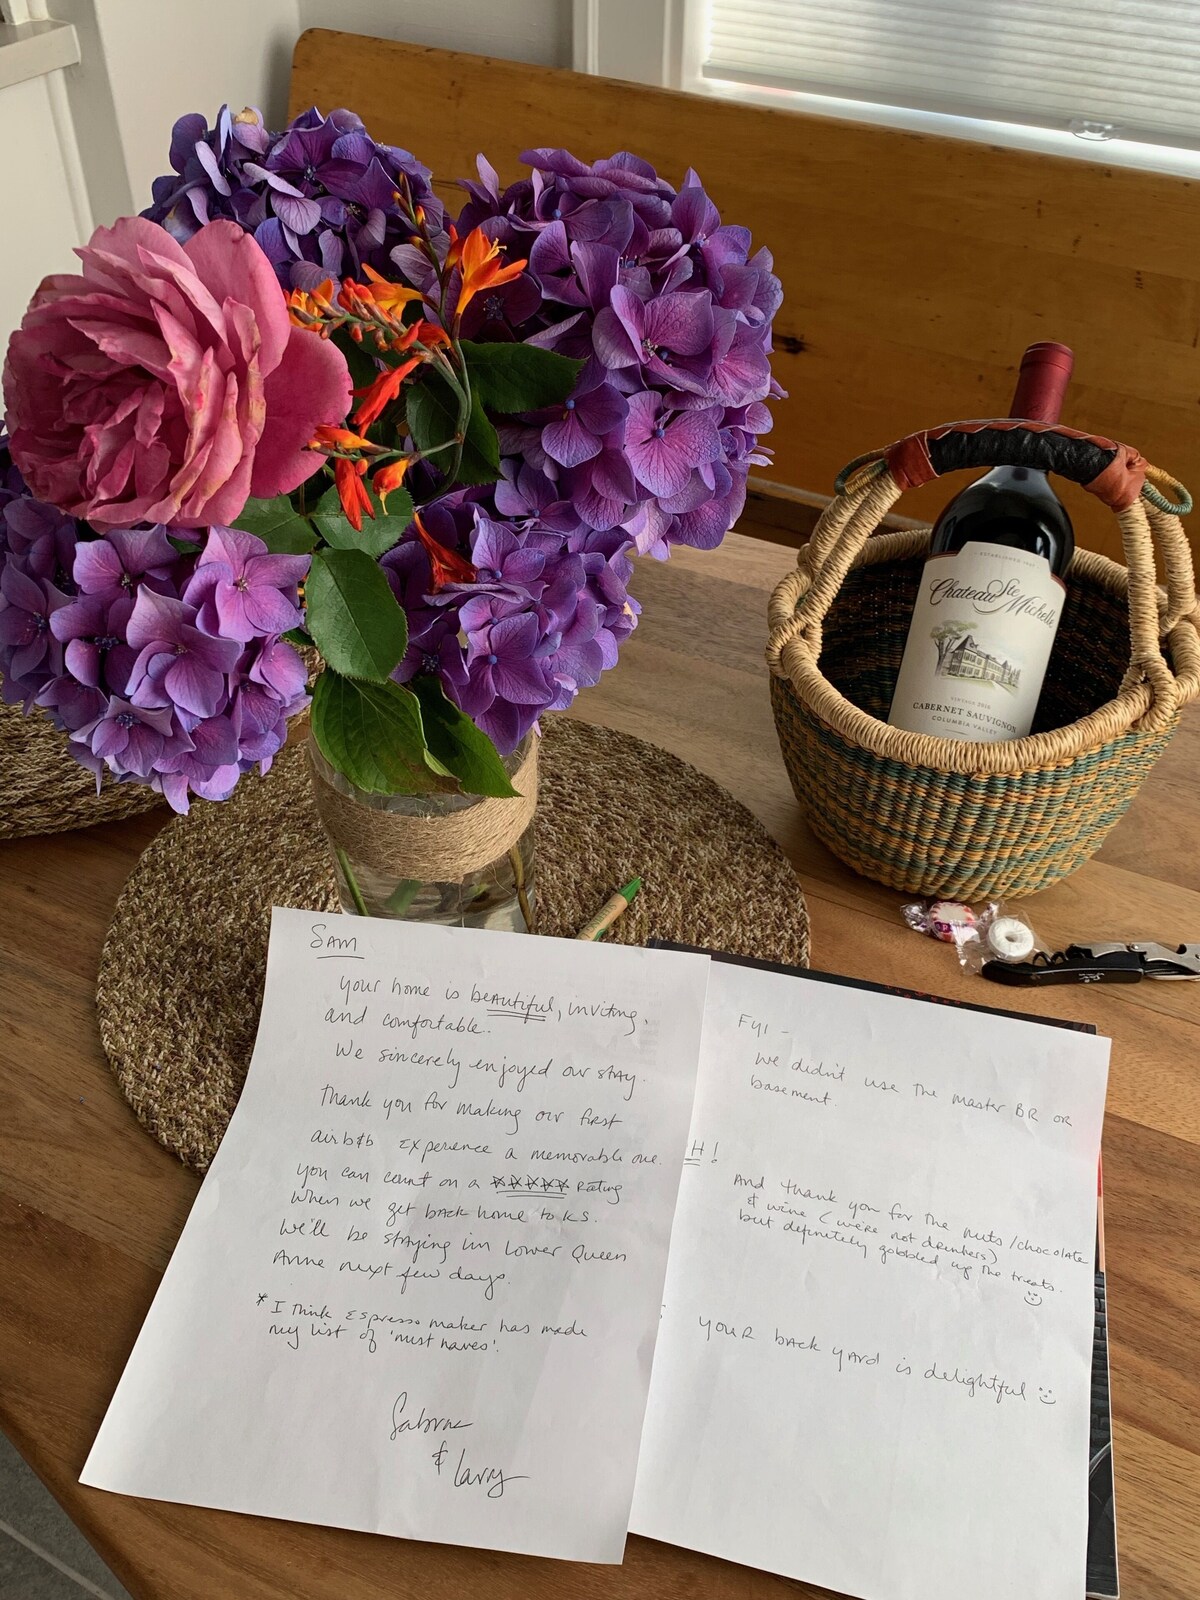 SAM
Your home is beautiful, inviting,
and comfortable.
We sincerely enjoyed our stay.
Thank you for making our first
airb&b experience a memorable one.
You can count on a ***** Rating
when we get back home to KS.
We'll be staying in Lower Queen
Anne next few days.
* I think Espresso maker has made
my list of 'must haves'.
Sabrina
& Larry
FYI -
We didn't use the master BR or
basement.
H!
And thank you for the nuts/chocolate
& wine (we're not drinkers)
but definitely gobbled up the treats.
Your back yard is delightful
ESTABLISHED 1967
Chateau Ste Michelle
VINTAGE 2016
CABERNET SAUVIGNON
COLUMBIA VALLEY